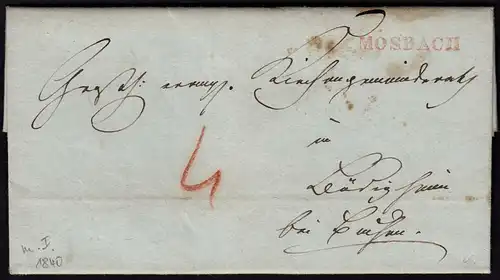 MOSBACH
Großh: evang. Kirchengemeinderath
in
Bödigheim
bei Buchen.
4
m. I.
1840